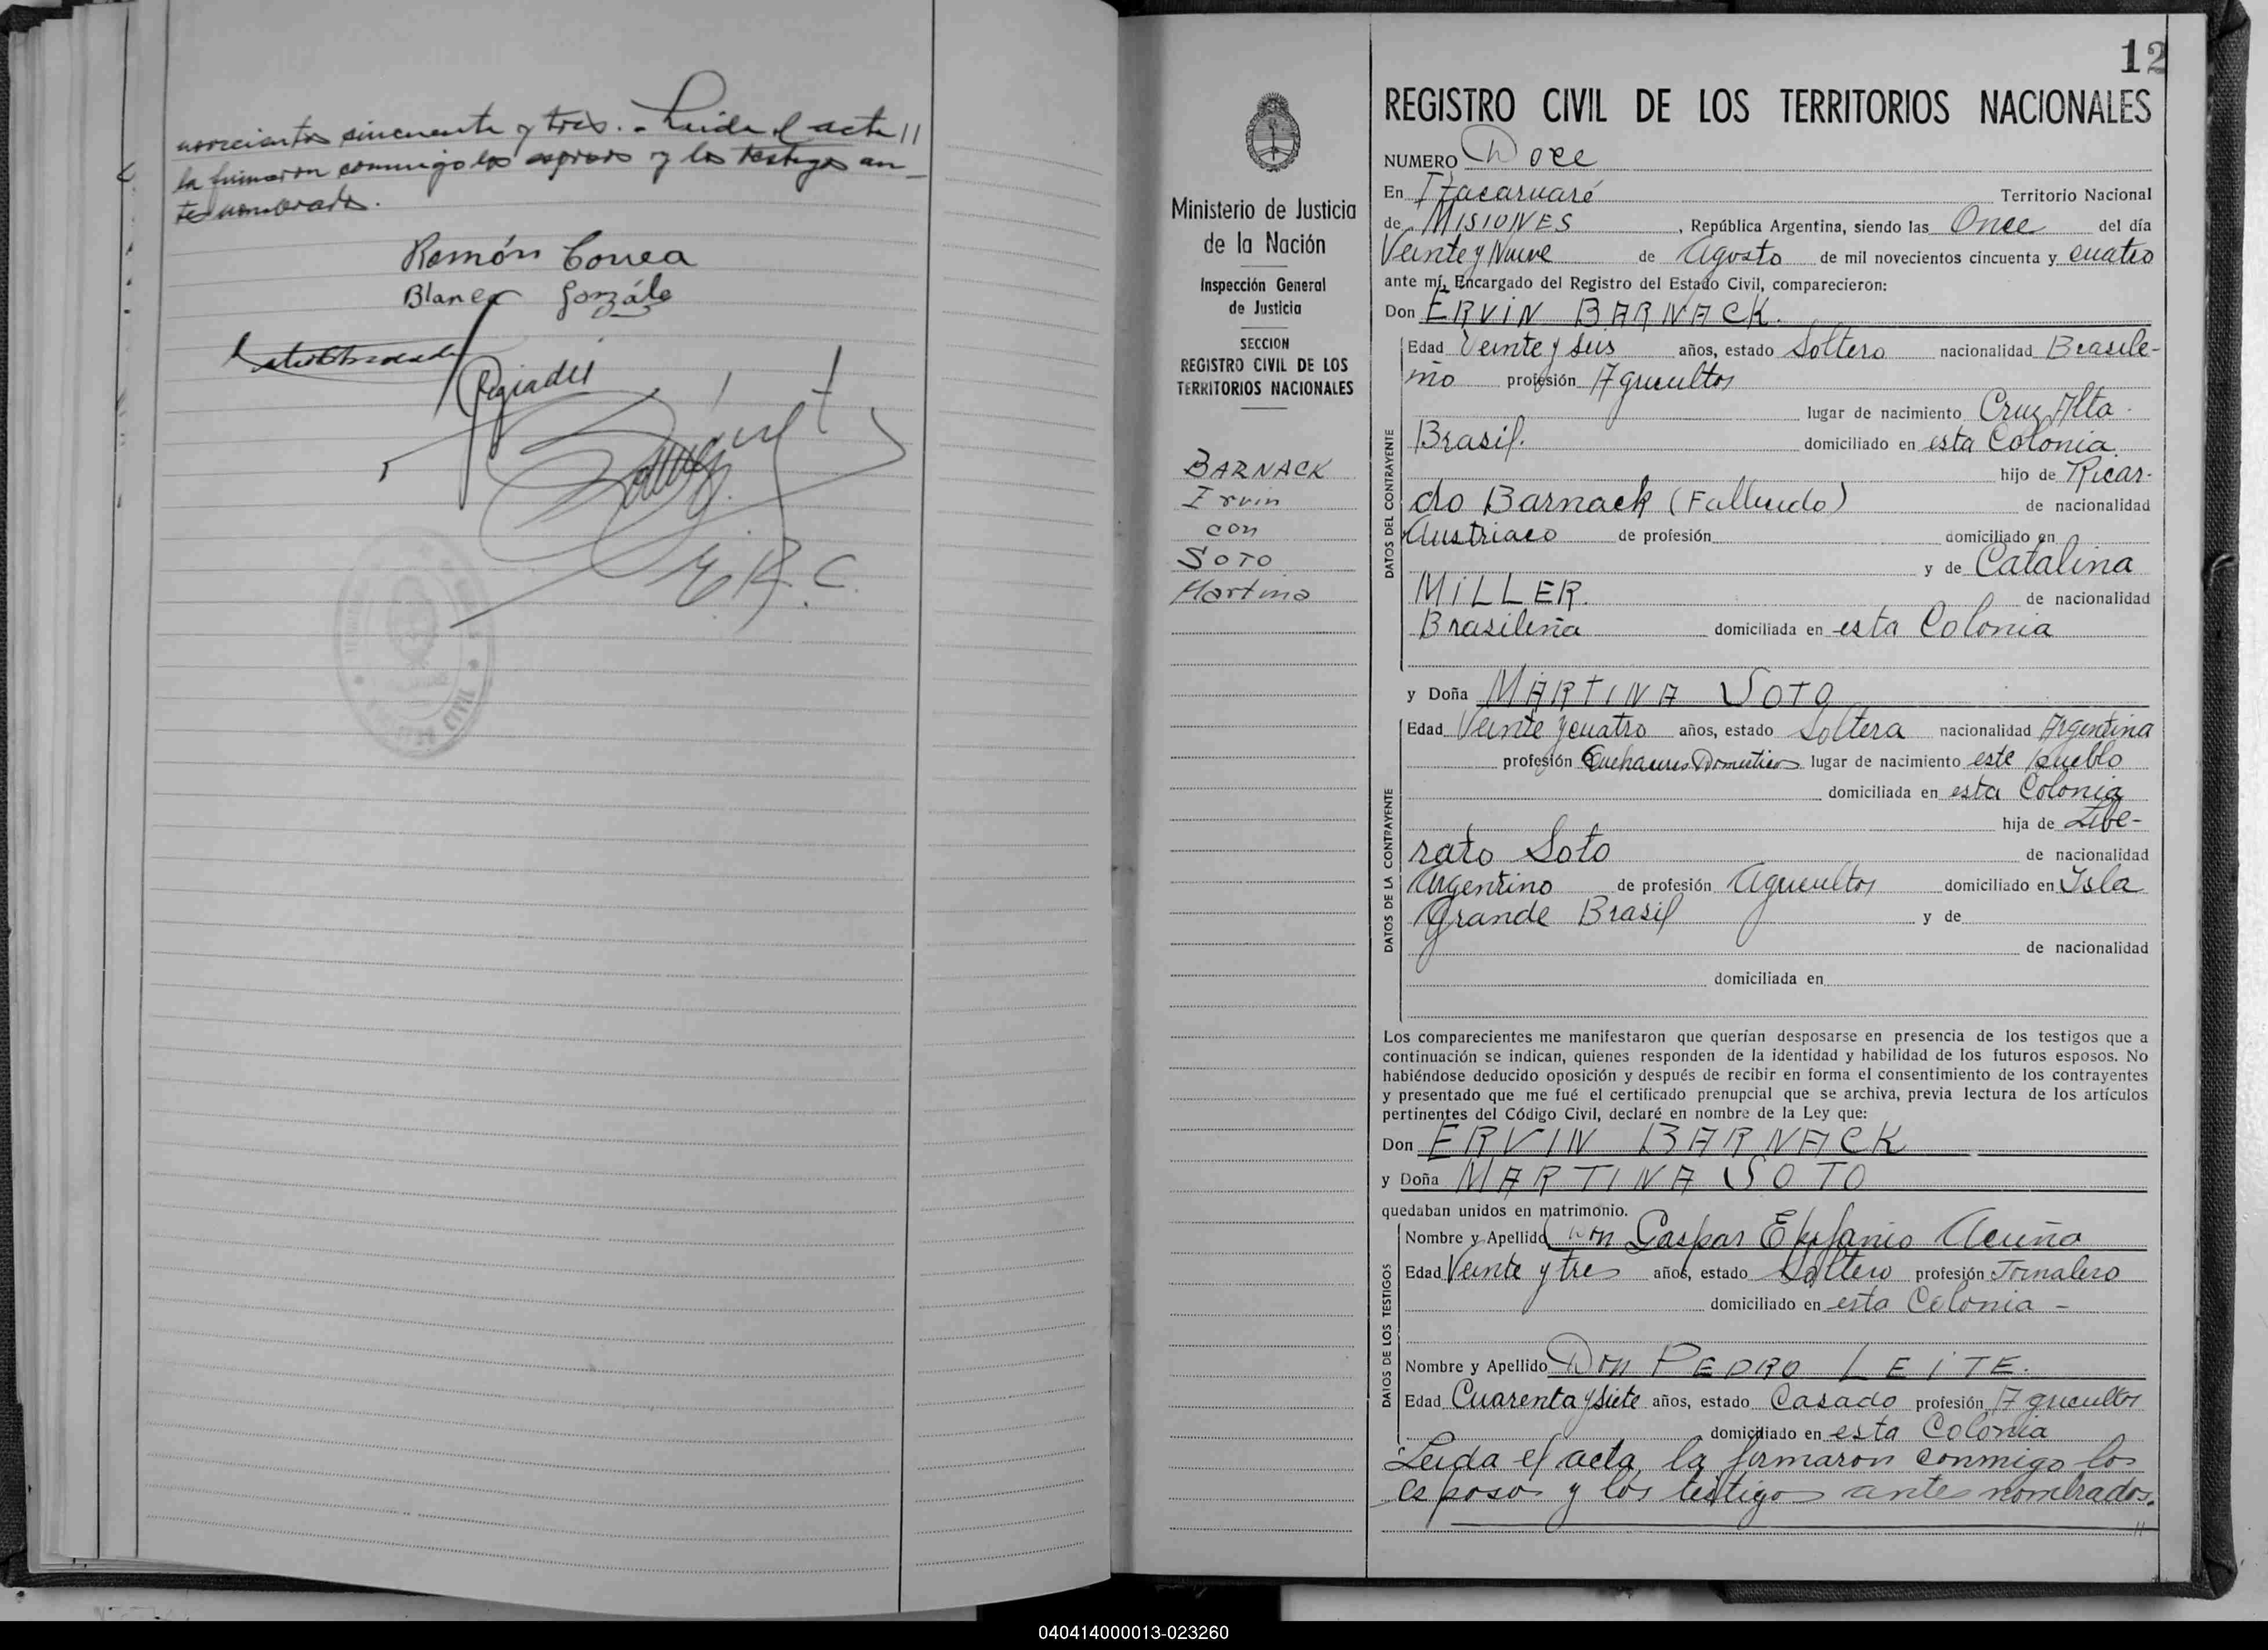 novecientos cincuenta y tres. - Leida el acta //
la firmaron conmigo los esposos y los testigos an-
te nombrados.
Ramón Correa
Blanca Gonzále
E. R. C.
12
REGISTRO CIVIL DE LOS TERRITORIOS NACIONALES
NUMERO Doce
En Itacaruaré Territorio Nacional
de MISIONES, República Argentina, siendo las Once del día
Veinte y Nueve de Agosto de mil novecientos cincuenta y cuatro
ante mí, Encargado del Registro del Estado Civil, comparecieron:
Don ERVIN BARNACK.
Ministerio de Justicia
de la Nación
Inspección General
de Justicia
SECCION
REGISTRO CIVIL DE LOS
TERRITORIOS NACIONALES
BARNACK
Irvin
con
SOTO
Martina
DATOS DEL CONTRAYENTE
Edad Veinte y seis años, estado Soltero nacionalidad Brasile-
ño profesión Agricultor
lugar de nacimiento Cruz Alta.
Brasil. domiciliado en esta Colonia.
hijo de Ricar-
do Barnack (Fallecido) de nacionalidad
Austriaco de profesión domiciliado en
y de Catalina
MILLER. de nacionalidad
Brasileña domiciliada en esta Colonia
y Doña MARTINA SOTO
DATOS DE LA CONTRAYENTE
Edad Veinte y cuatro años, estado Soltera nacionalidad Argentina
profesión Quehaceres Domesticos lugar de nacimiento este pueblo
domiciliada en esta Colonia
hija de Libe-
rato Soto de nacionalidad
Argentino de profesión Agricultor domiciliado en Isla
Grande Brasil y de
de nacionalidad
domiciliada en
Los comparecientes me manifestaron que querían desposarse en presencia de los testigos que a
continuación se indican, quienes responden de la identidad y habilidad de los futuros esposos. No
habiéndose deducido oposición y después de recibir en forma el consentimiento de los contrayentes
y presentado que me fué el certificado prenupcial que se archiva, previa lectura de los artículos
pertinentes del Código Civil, declaré en nombre de la Ley que:
Don ERVIN BARNACK
y Doña MARTINA SOTO
quedaban unidos en matrimonio.
DATOS DE LOS TESTIGOS
Nombre y Apellido Don Gaspar Epifanio Acuña
Edad Veinte y tres años, estado Soltero profesión Jornalero
domiciliado en esta Colonia -
Nombre y Apellido Don PEDRO LEITE.
Edad Cuarenta y siete años, estado Casado profesión Agricultor
domiciliado en esta Colonia
Leida el acta, la firmaron conmigo los
esposos y los testigos antes nombrados.
//
040414000013-023260